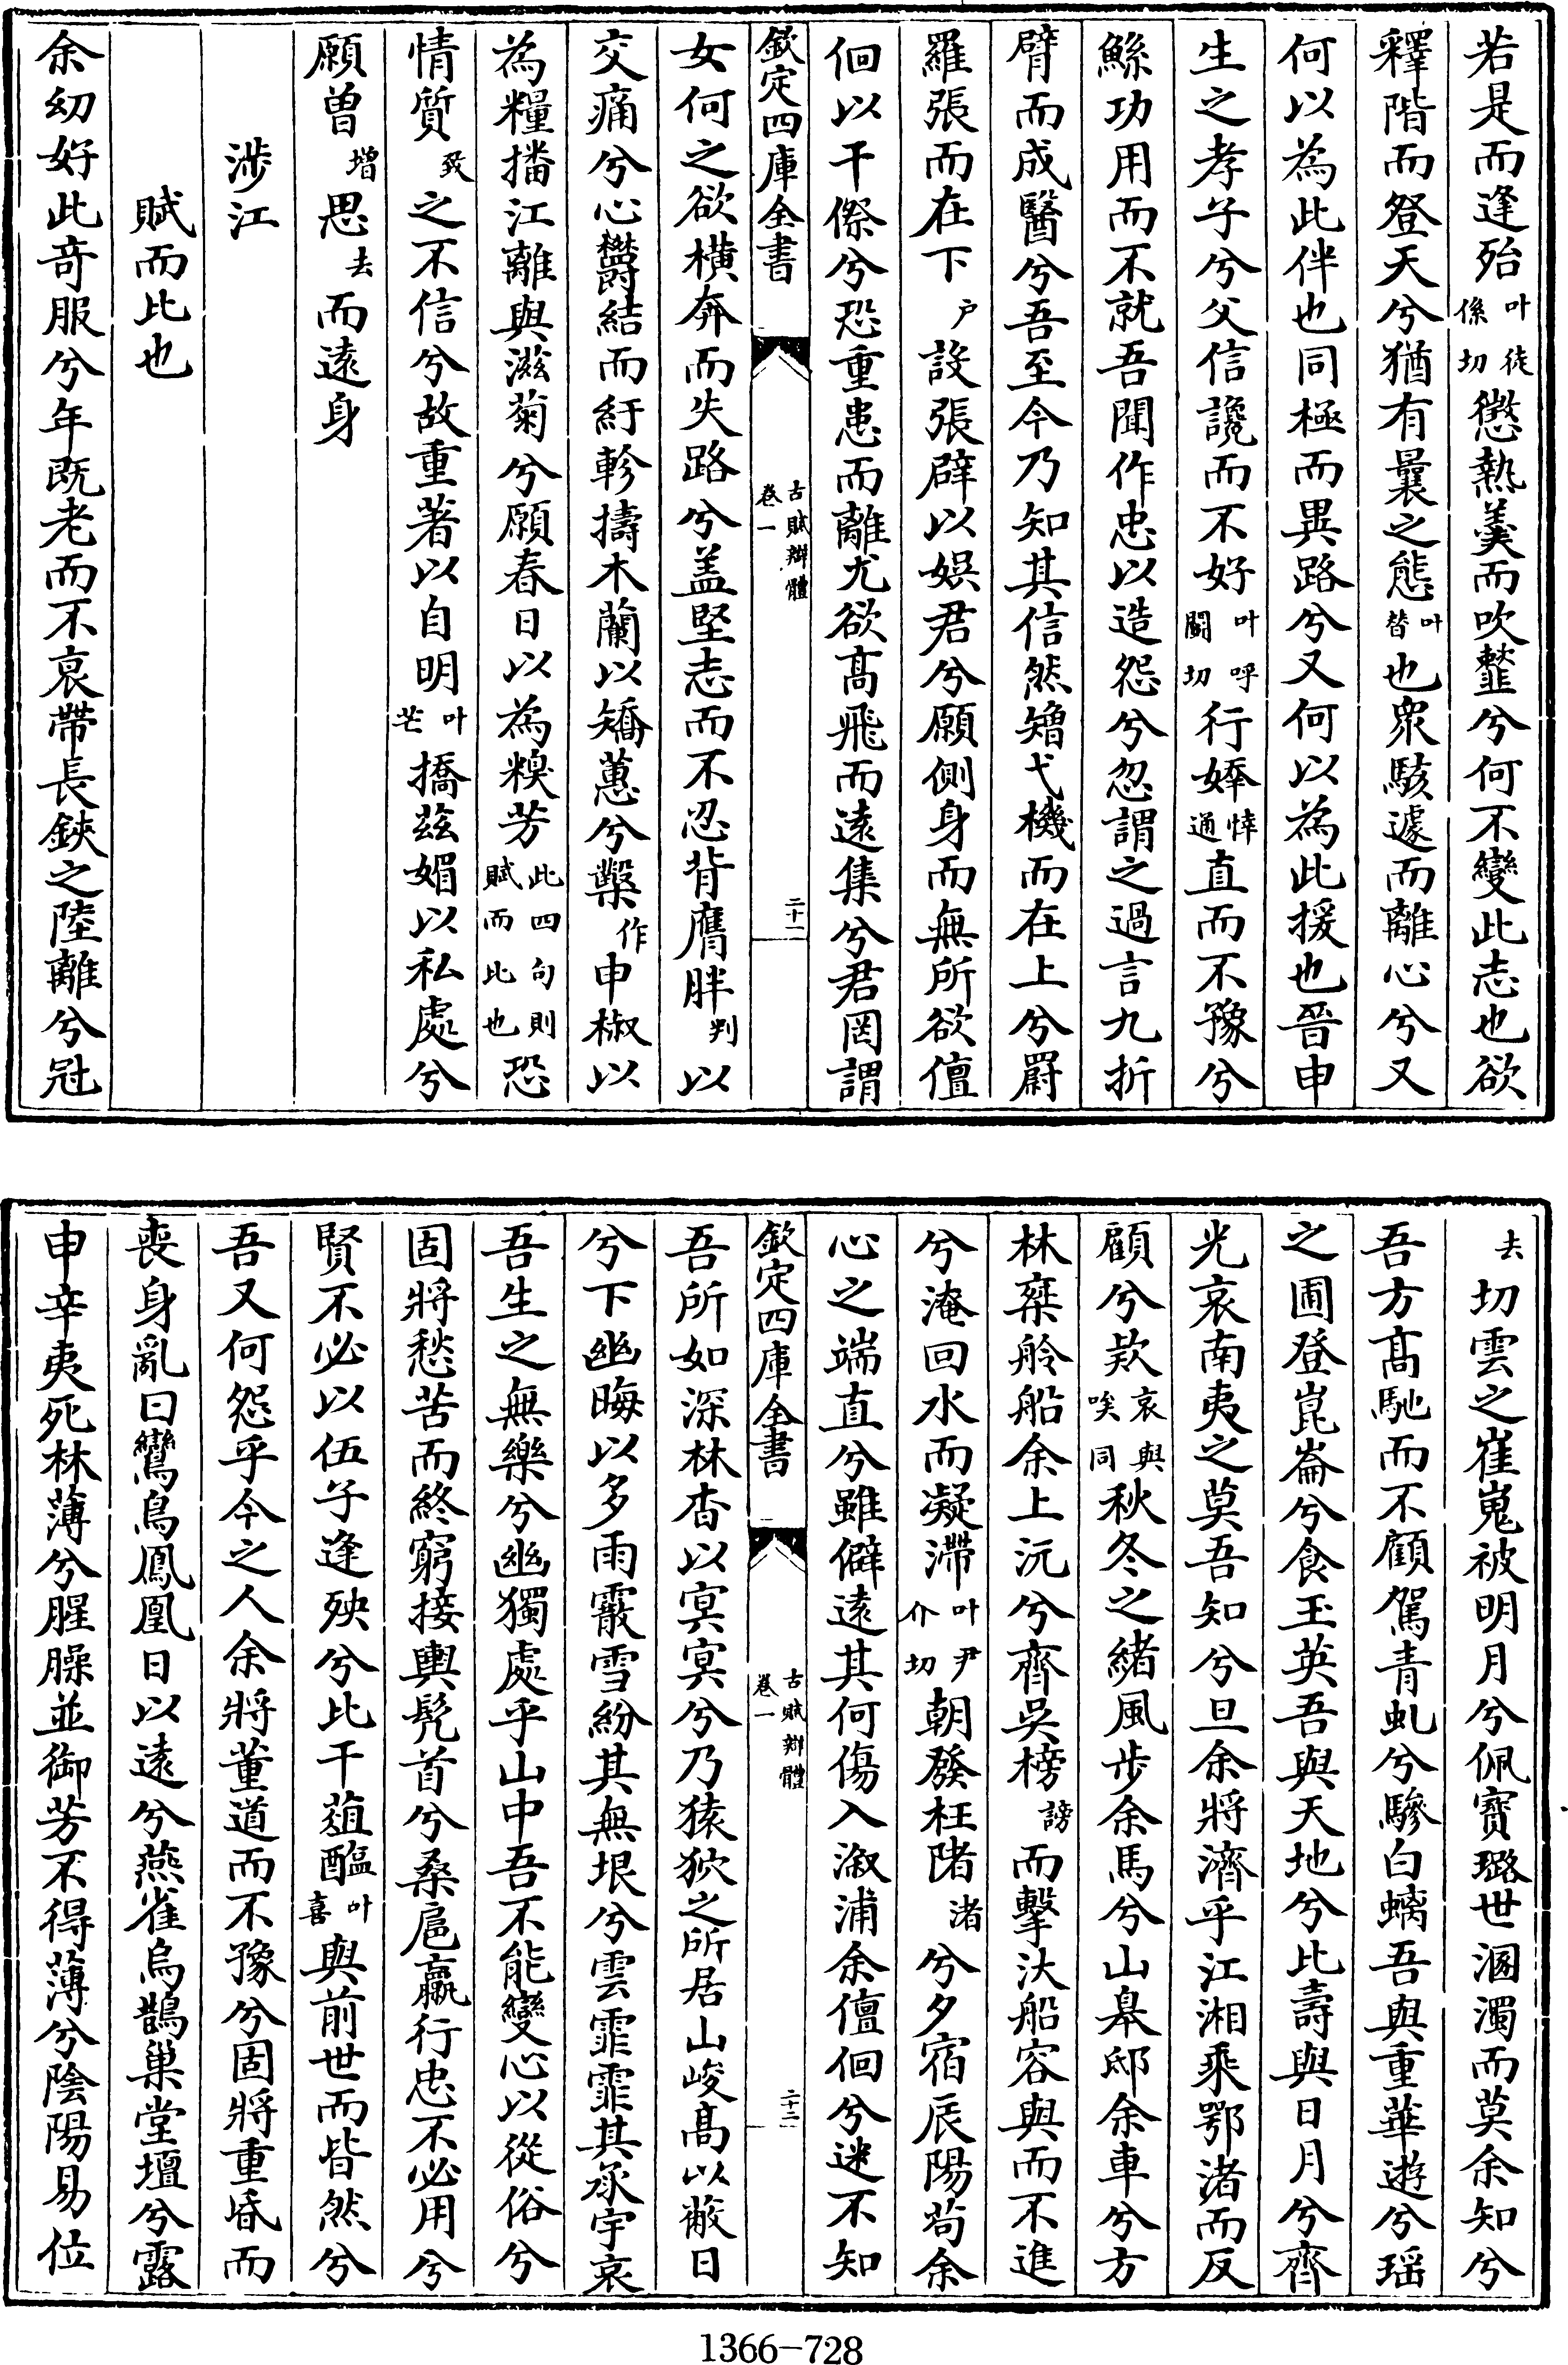 若是而逢殆叶徒係切懲熱羮而吹虀兮何不變此志也欲
釋階而登天兮猶有曩之態叶替也衆駭遽而離心兮又
何以為此伴也同極而異路兮又何以為此援也晉申
生之孝子兮父信讒而不好叶呼鬭切行婞悻通直而不豫兮
鯀功用而不就吾聞作忠以造怨兮忽謂之過言九折
臂而成醫兮吾至今乃知其信然矰弋機而在上兮罻
羅張而在下户設張辟以娯君兮願側身而無所欲儃
佪以干傺兮恐重患而離尤欲髙飛而逺集兮君罔謂
欽定四庫全書
古賦辯體
卷一
二十一
女何之欲橫奔而失路兮盖堅志而不忍背膺胖判以
交痛兮心欝結而紆軫擣木蘭以矯蕙兮糳作申椒以
為糧播江離與滋菊兮願春日以為糗芳此四句則賦而比也恐
情質致之不信兮故重著以自明叶芒撟兹媚以私處兮
願曾增思去而逺身
涉江
賦而比也
余幼好此竒服兮年既老而不哀帶長鋏之陸離兮冠
去切雲之崔嵬被明月兮佩寳璐世溷濁而莫余知兮
吾方髙馳而不顧駕青虬兮驂白螭吾與重華遊兮瑶
之圃登崑崙兮食玉英吾與天地兮比壽與日月兮齊
光哀南夷之莫吾知兮旦余將濟乎江湘乘鄂渚而反
顧兮欸哀與唉同秋冬之緒風步余馬兮山皋邸余車兮方
林椉舲船余上沅兮齊吳榜謗而擊汏船容與而不進
兮淹回水而凝滯叶尹介切朝發枉陼渚兮夕宿辰陽茍余
心之端直兮雖僻逺其何傷入溆浦余儃佪兮迷不知
欽定四庫全書
古賦辯體
卷一
二十二
吾所如深林杳以㝠㝠兮乃猿狖之所居山峻髙以蔽日
兮下幽晦以多雨霰雪紛其無垠兮雲霏霏其承宇哀
吾生之無樂兮幽獨處乎山中吾不能變心以從俗兮
固將愁苦而終窮接輿髠首兮桑扈臝行忠不必用兮
賢不必以伍子逢殃兮比干葅醢叶喜與前世而皆然兮
吾又何怨乎今之人余將董道而不豫兮固將重昏而
喪身亂曰鸞鳥鳳凰日以逺兮燕雀烏鵲巢堂壇兮露
申辛夷死林薄兮腥臊並御芳不得薄兮陰陽易位
1366-728